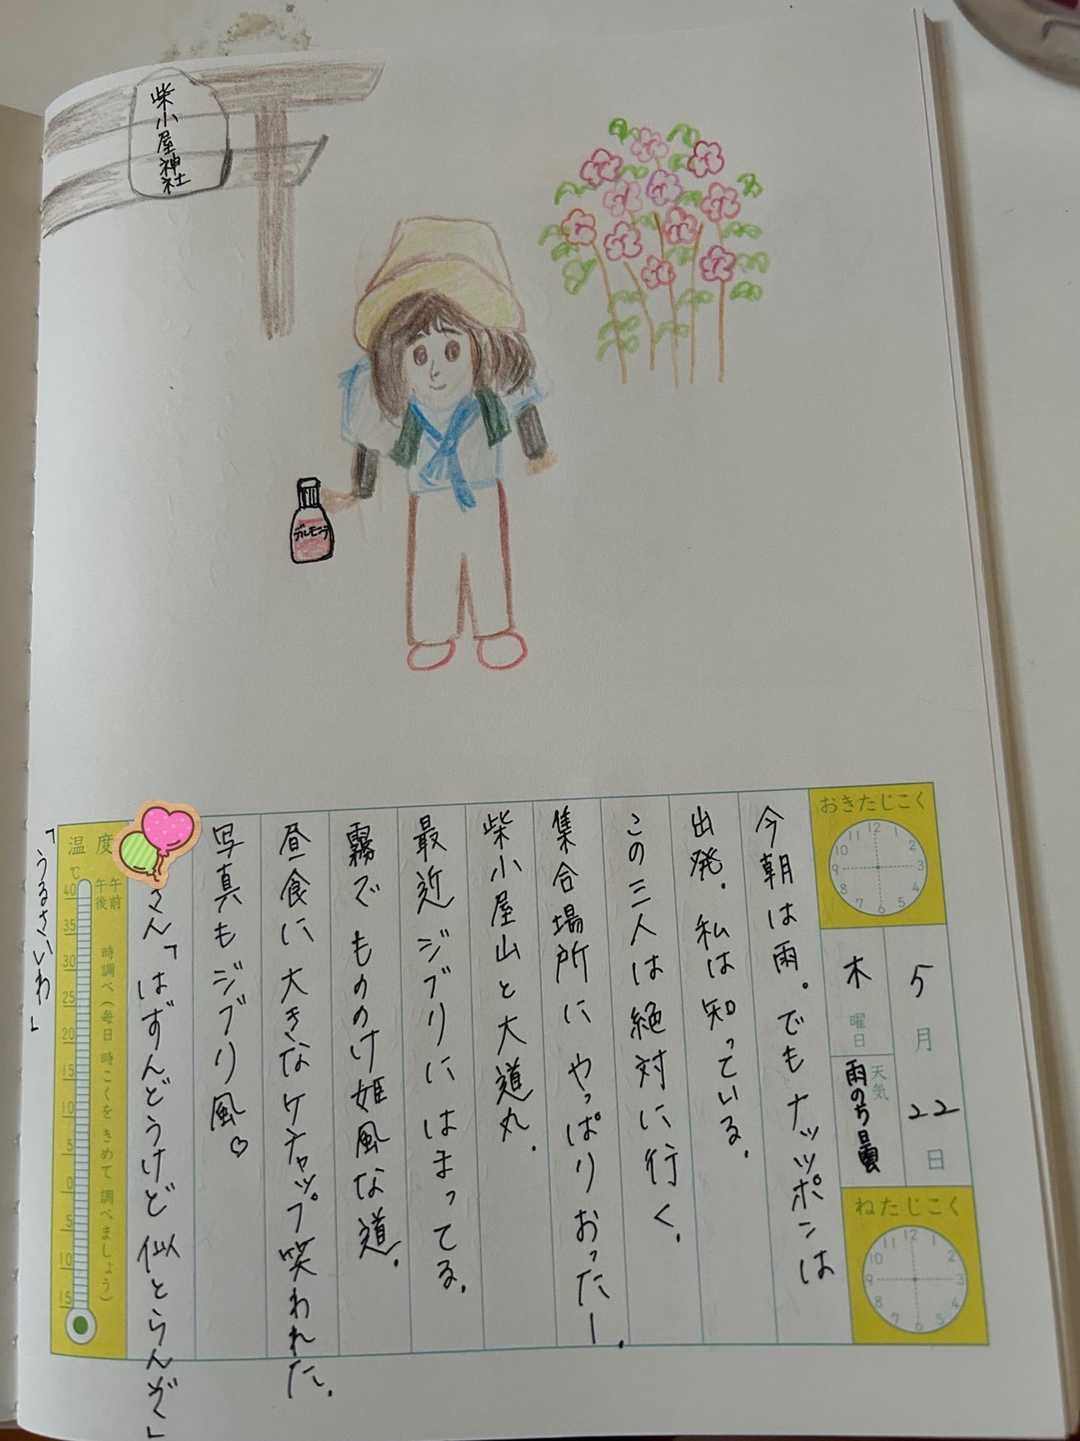 柴小屋神社
デルモンテ
おきたじこく
12
1
2
3
4
5
6
7
8
9
10
11
5月22日
木曜日
天気
雨のち曇
ねたじこく
12
1
2
3
4
5
6
7
8
9
10
11
今朝は雨。でもナッツポンは
出発.私は知っている.
この三人は絶対に行く.
集合場所にやっぱりおったー.
柴小屋山と大道丸.
最近ジブリにはまってる.
霧でもののけ姫風な道.
昼食に大きなケチャップ笑われた.
写真もジブリ風♡
さん「はずんどうけど似とらんぞ」
温度
℃
午前
午後
時調べ(毎日 時こくを きめて 調べましょう)
40
35
30
25
20
15
10
5
0
5
10
15
「うるさいわ」